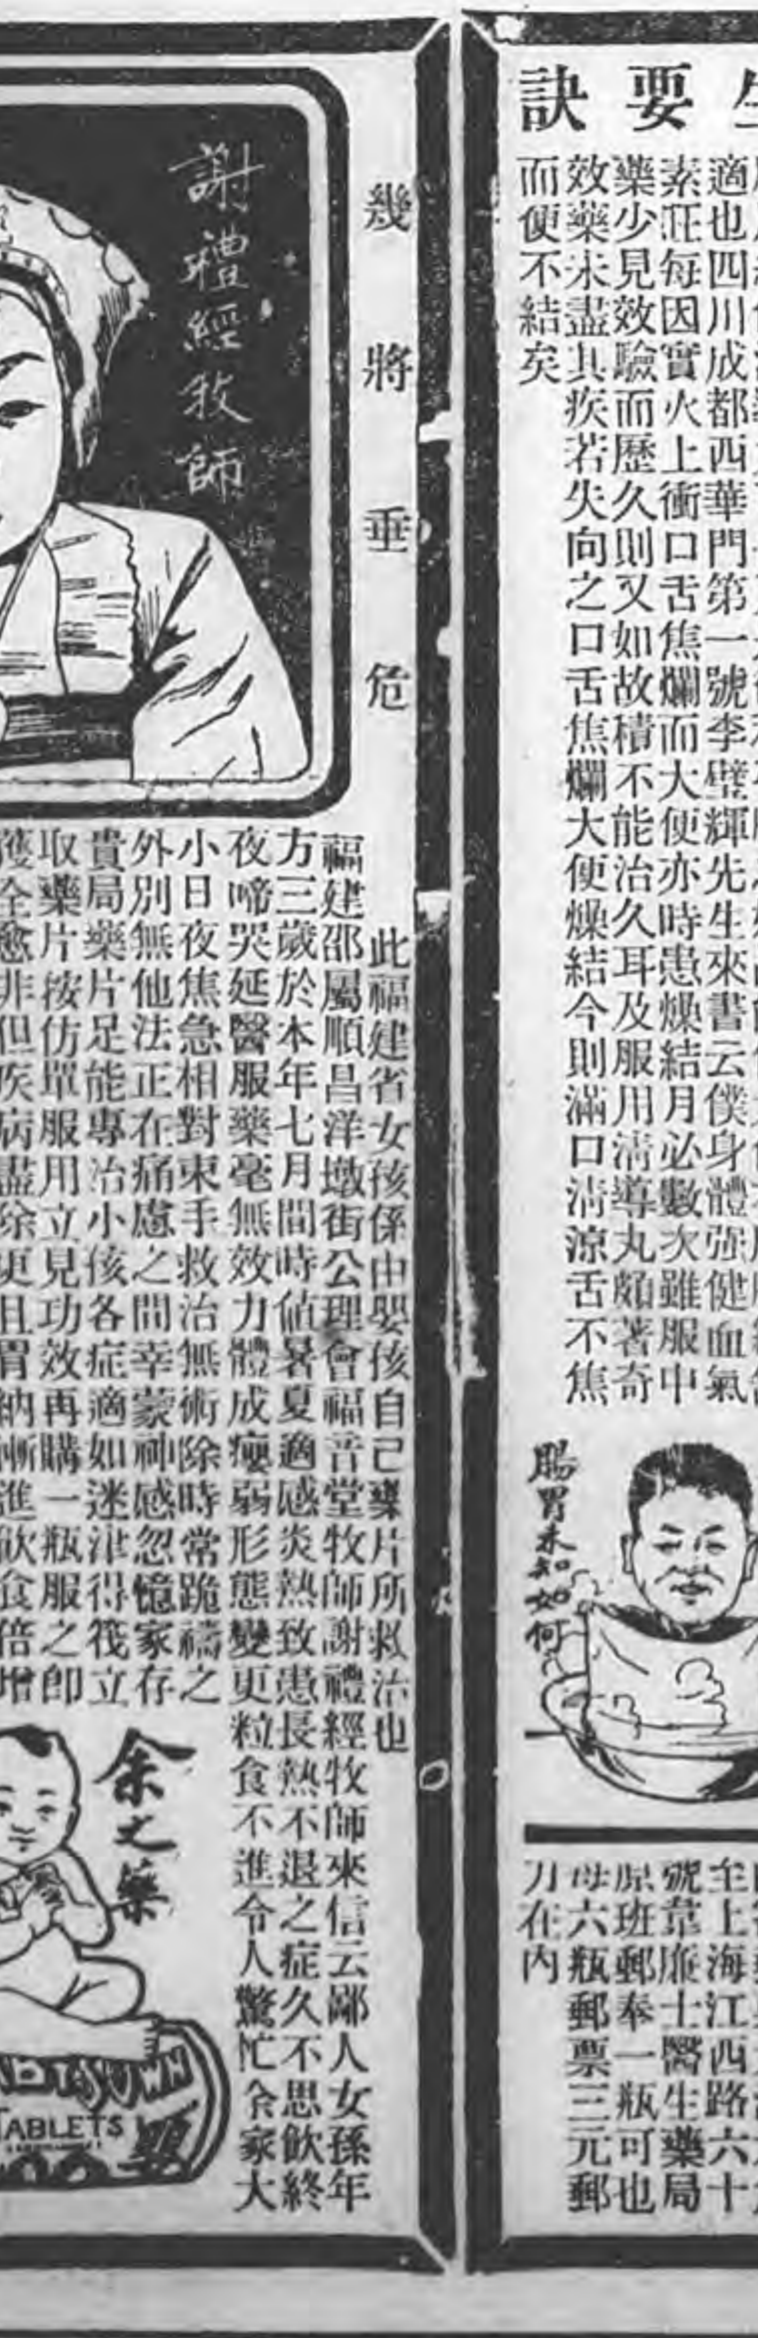 要訣
適也四川成都西華門第一號李璧輝先生來書云僕身體强健血氣
素旺每因實火上衝口舌焦爛而大便亦時患燥結月必數次雖服中
藥少見效驗而歷久則又如故積不能治久耳及服用清導丸頗著奇
效藥未盡其疾若失向之口舌焦爛大便燥結今則滿口清涼舌不焦
而便不結矣
腸胃未知如何
至上海江西路六十
號韋廉士醫生藥局
原班郵奉一瓶可也
每六瓶郵票三元郵
力在內
幾將垂危
謝禮經牧師
此福建省女孩係由嬰孩自己藥片所救治也
福建邵屬順昌洋墩街公理會福音堂牧師謝禮經牧師來信云鄙人女孫年
方三歲於本年七月間時値暑夏適感炎熱致患長熱不退之症久不思飲終
夜啼哭延醫服藥毫無效力體成瘦弱形態變更粒食不進令人驚忙合家大
小日夜焦急相對束手救治無術除時常跪禱之
外別無他法正在痛慮之間幸蒙神感忽憶家存
貴局藥片足能專治小孩各症適如迷津得筏立
取藥片按仿單服用立見功效再購一瓶服之卽
獲全愈非但疾病盡除更且胃納漸進飲食倍增
余之藥
TABLETS